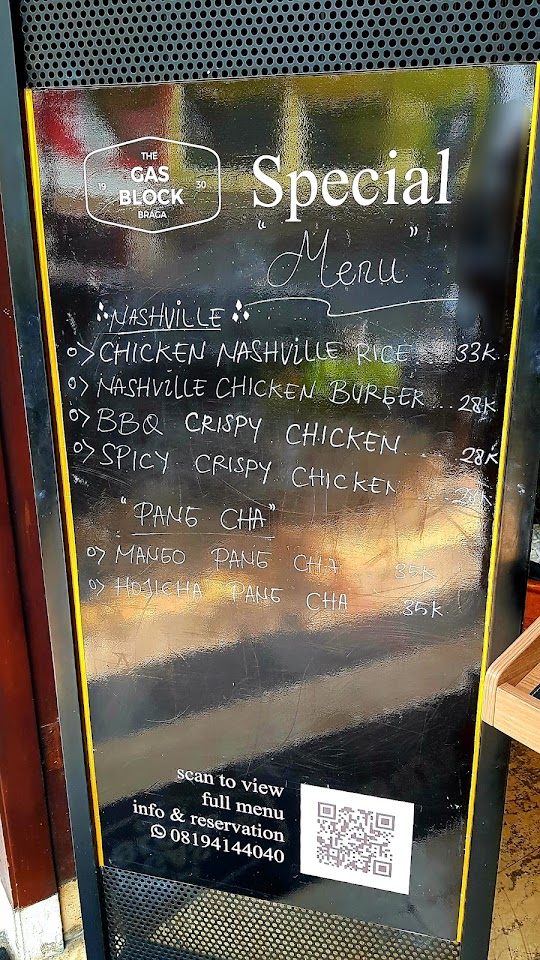 THE
GAS
19 30
BLOCK
BRAGA
Special
"Menu"
NASHVILLE
CHICKEN NASHVILLE RICE ... 33K
NASHVILLE CHICKEN BURGER ... 28K
BBQ CRISPY CHICKEN ... 28K
SPICY CRISPY CHICKEN ....
"PANG CHA"
MANGO PANG CHA 35K
HOJICHA PANG CHA 35K
scan to view
full menu
info & reservation
08194144040